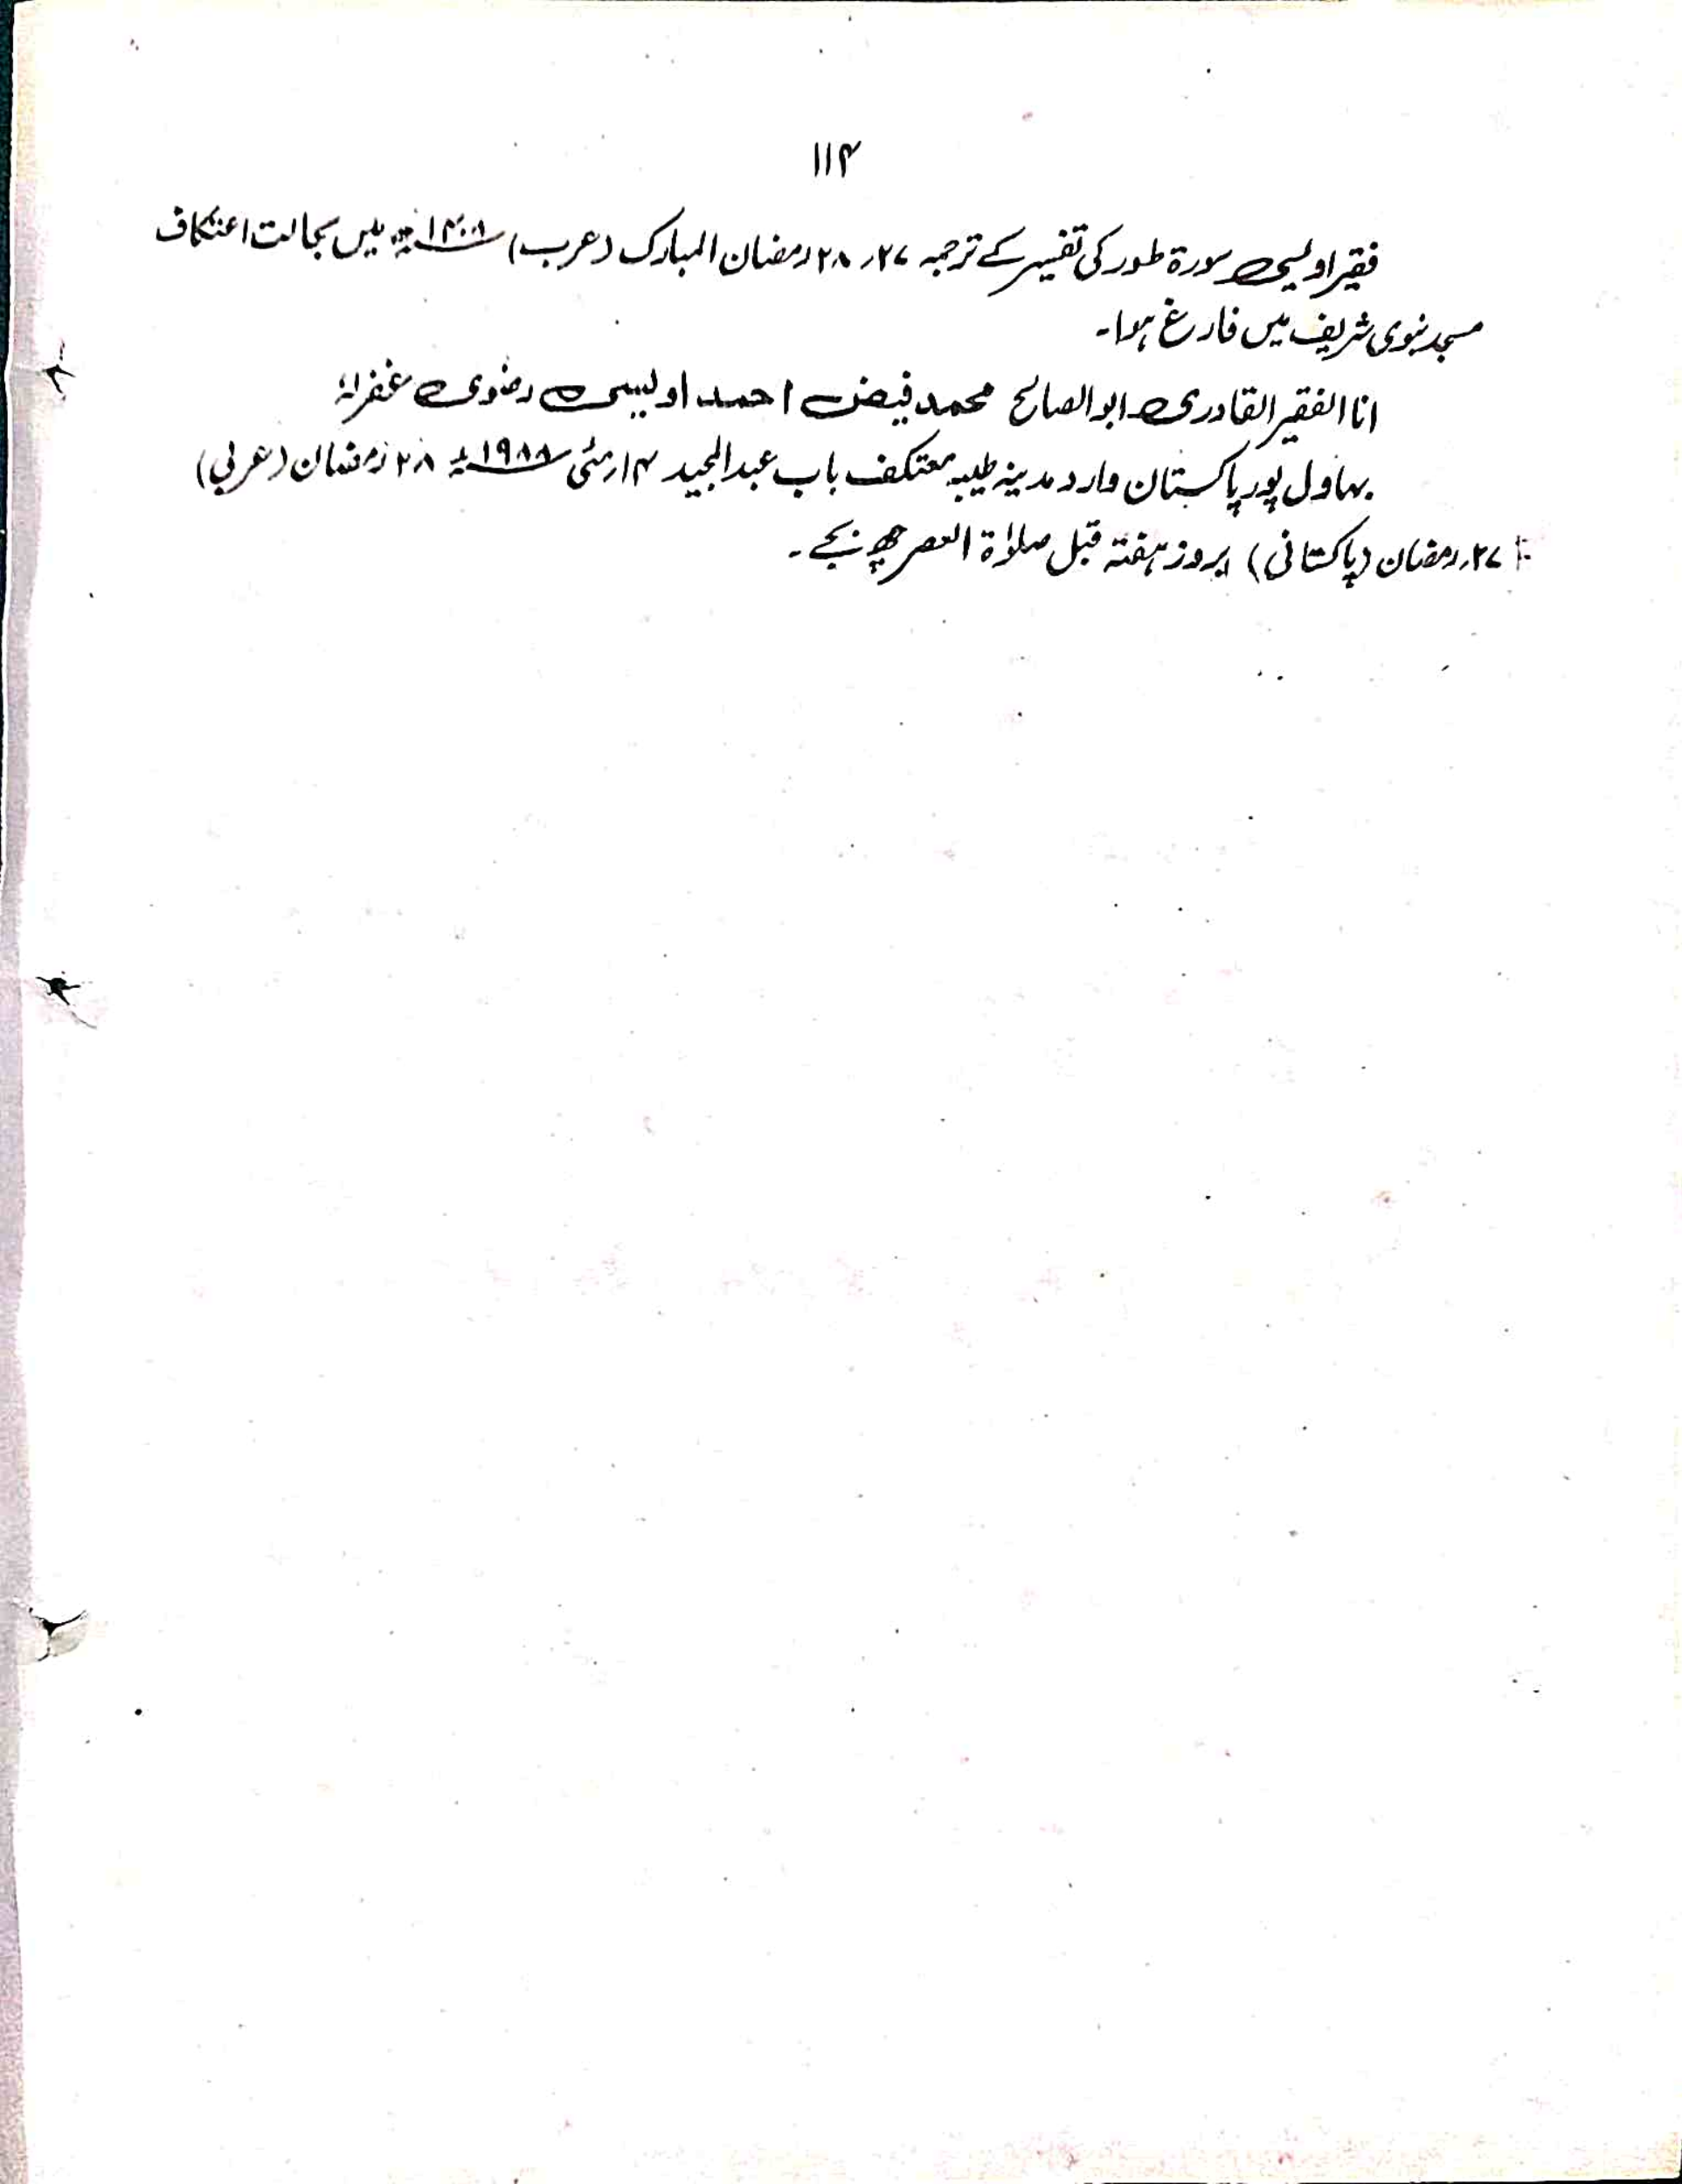 ۱۱۴
فقیر اویسی سورۃ طور کی تفسیر کے ترجمہ ۲۷، ۲۸ رمضان المبارک (عرب) ۱۴۰۸ھ میں بحالت اعتکاف
مسجد نبوی شریف میں فارغ ہوا۔
انا الفقیر القادری ابو الصالح محمد فیض احمد اویسی رضوی غفرلہٗ
بہاول پور پاکستان وارد مدینہ طیبہ معتکف باب عبدالمجید ۱۴ مئی ۱۹۸۸ء ۲۸ رمضان (عربی)
۲۷ رمضان (پاکستانی) بروز ہفتہ قبل صلاۃ العصر چھ بجے۔